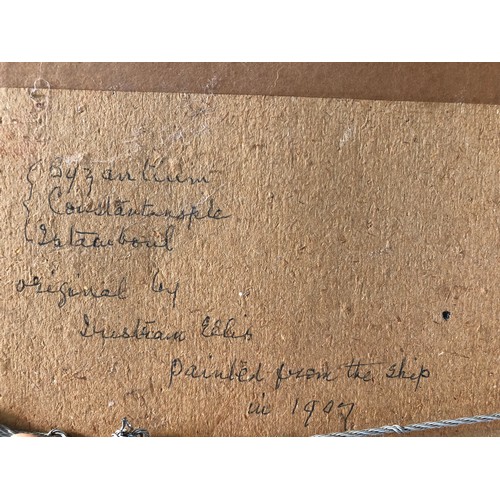 { Byzantium
{ Constantinople
{ Istanboul
original by
Tristram Ellis
Painted from the ship
in 1907